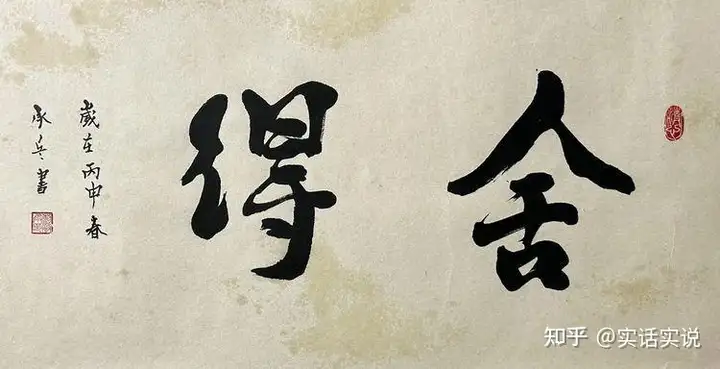 舍得
歲在丙申春
承兵書
知乎 @实话实说